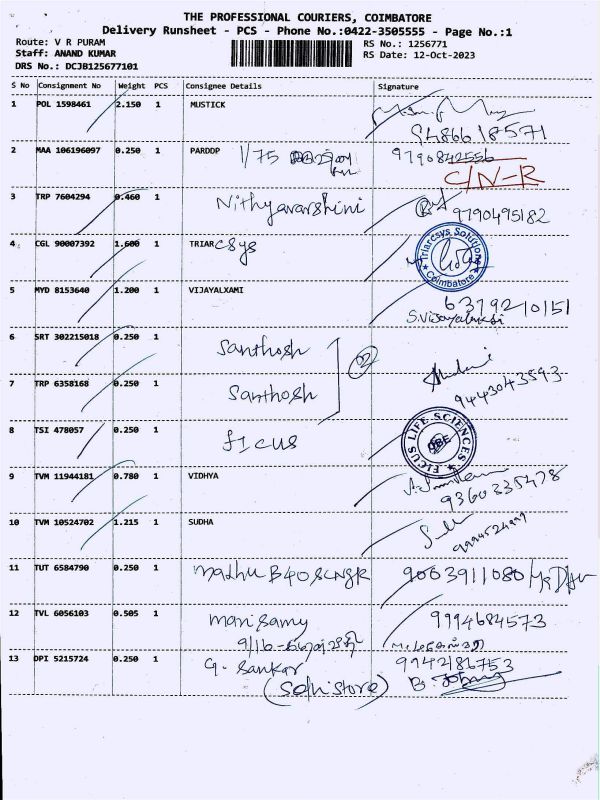 THE PROFESSIONAL COURIERS, COIMBATORE
Delivery Runsheet - PCS - Phone No.:0422-3505555 - Page No.:1
Route: V R PURAM
RS No.: 1256771
Staff: ANAND KUMAR
RS Date: 12-Oct-2023
DRS No.: DCJB125677101
S No Consignment No Weight PCS Consignee Details Signature
1 POL 1598461 2.150 1 MUSTICK
9486618571
2 MAA 106196097 0.250 1 PARDDP 1/75 9790842556
C/N-R
3 TRP 7604294 0.460 1 Nithyavarshini 9790495182
4 CGL 90007392 1.600 1 TRIARCSYS Triarcsys Solutions Coimbatore
5 MYD 8153640 1.200 1 VIJAYALXAMI 6379210151
S.Vijayalakshi
6 SRT 302215018 0.250 1 Santhosh
7 TRP 6358168 0.250 1 Santhosh 9443043593
8 TSI 478057 0.250 1 ficus FICUS LIFE SCIENCES CBE
9 TVM 11944181 0.780 1 VIDHYA
9360335478
10 TVM 10524702 1.215 1 SUDHA
11 TUT 6584790 0.250 1 madhu B40 9003911080
12 TVL 6056103 0.505 1 mari samy 9994684573
9/16
13 DPI 5215724 0.250 1 G. Sankar 9942186753